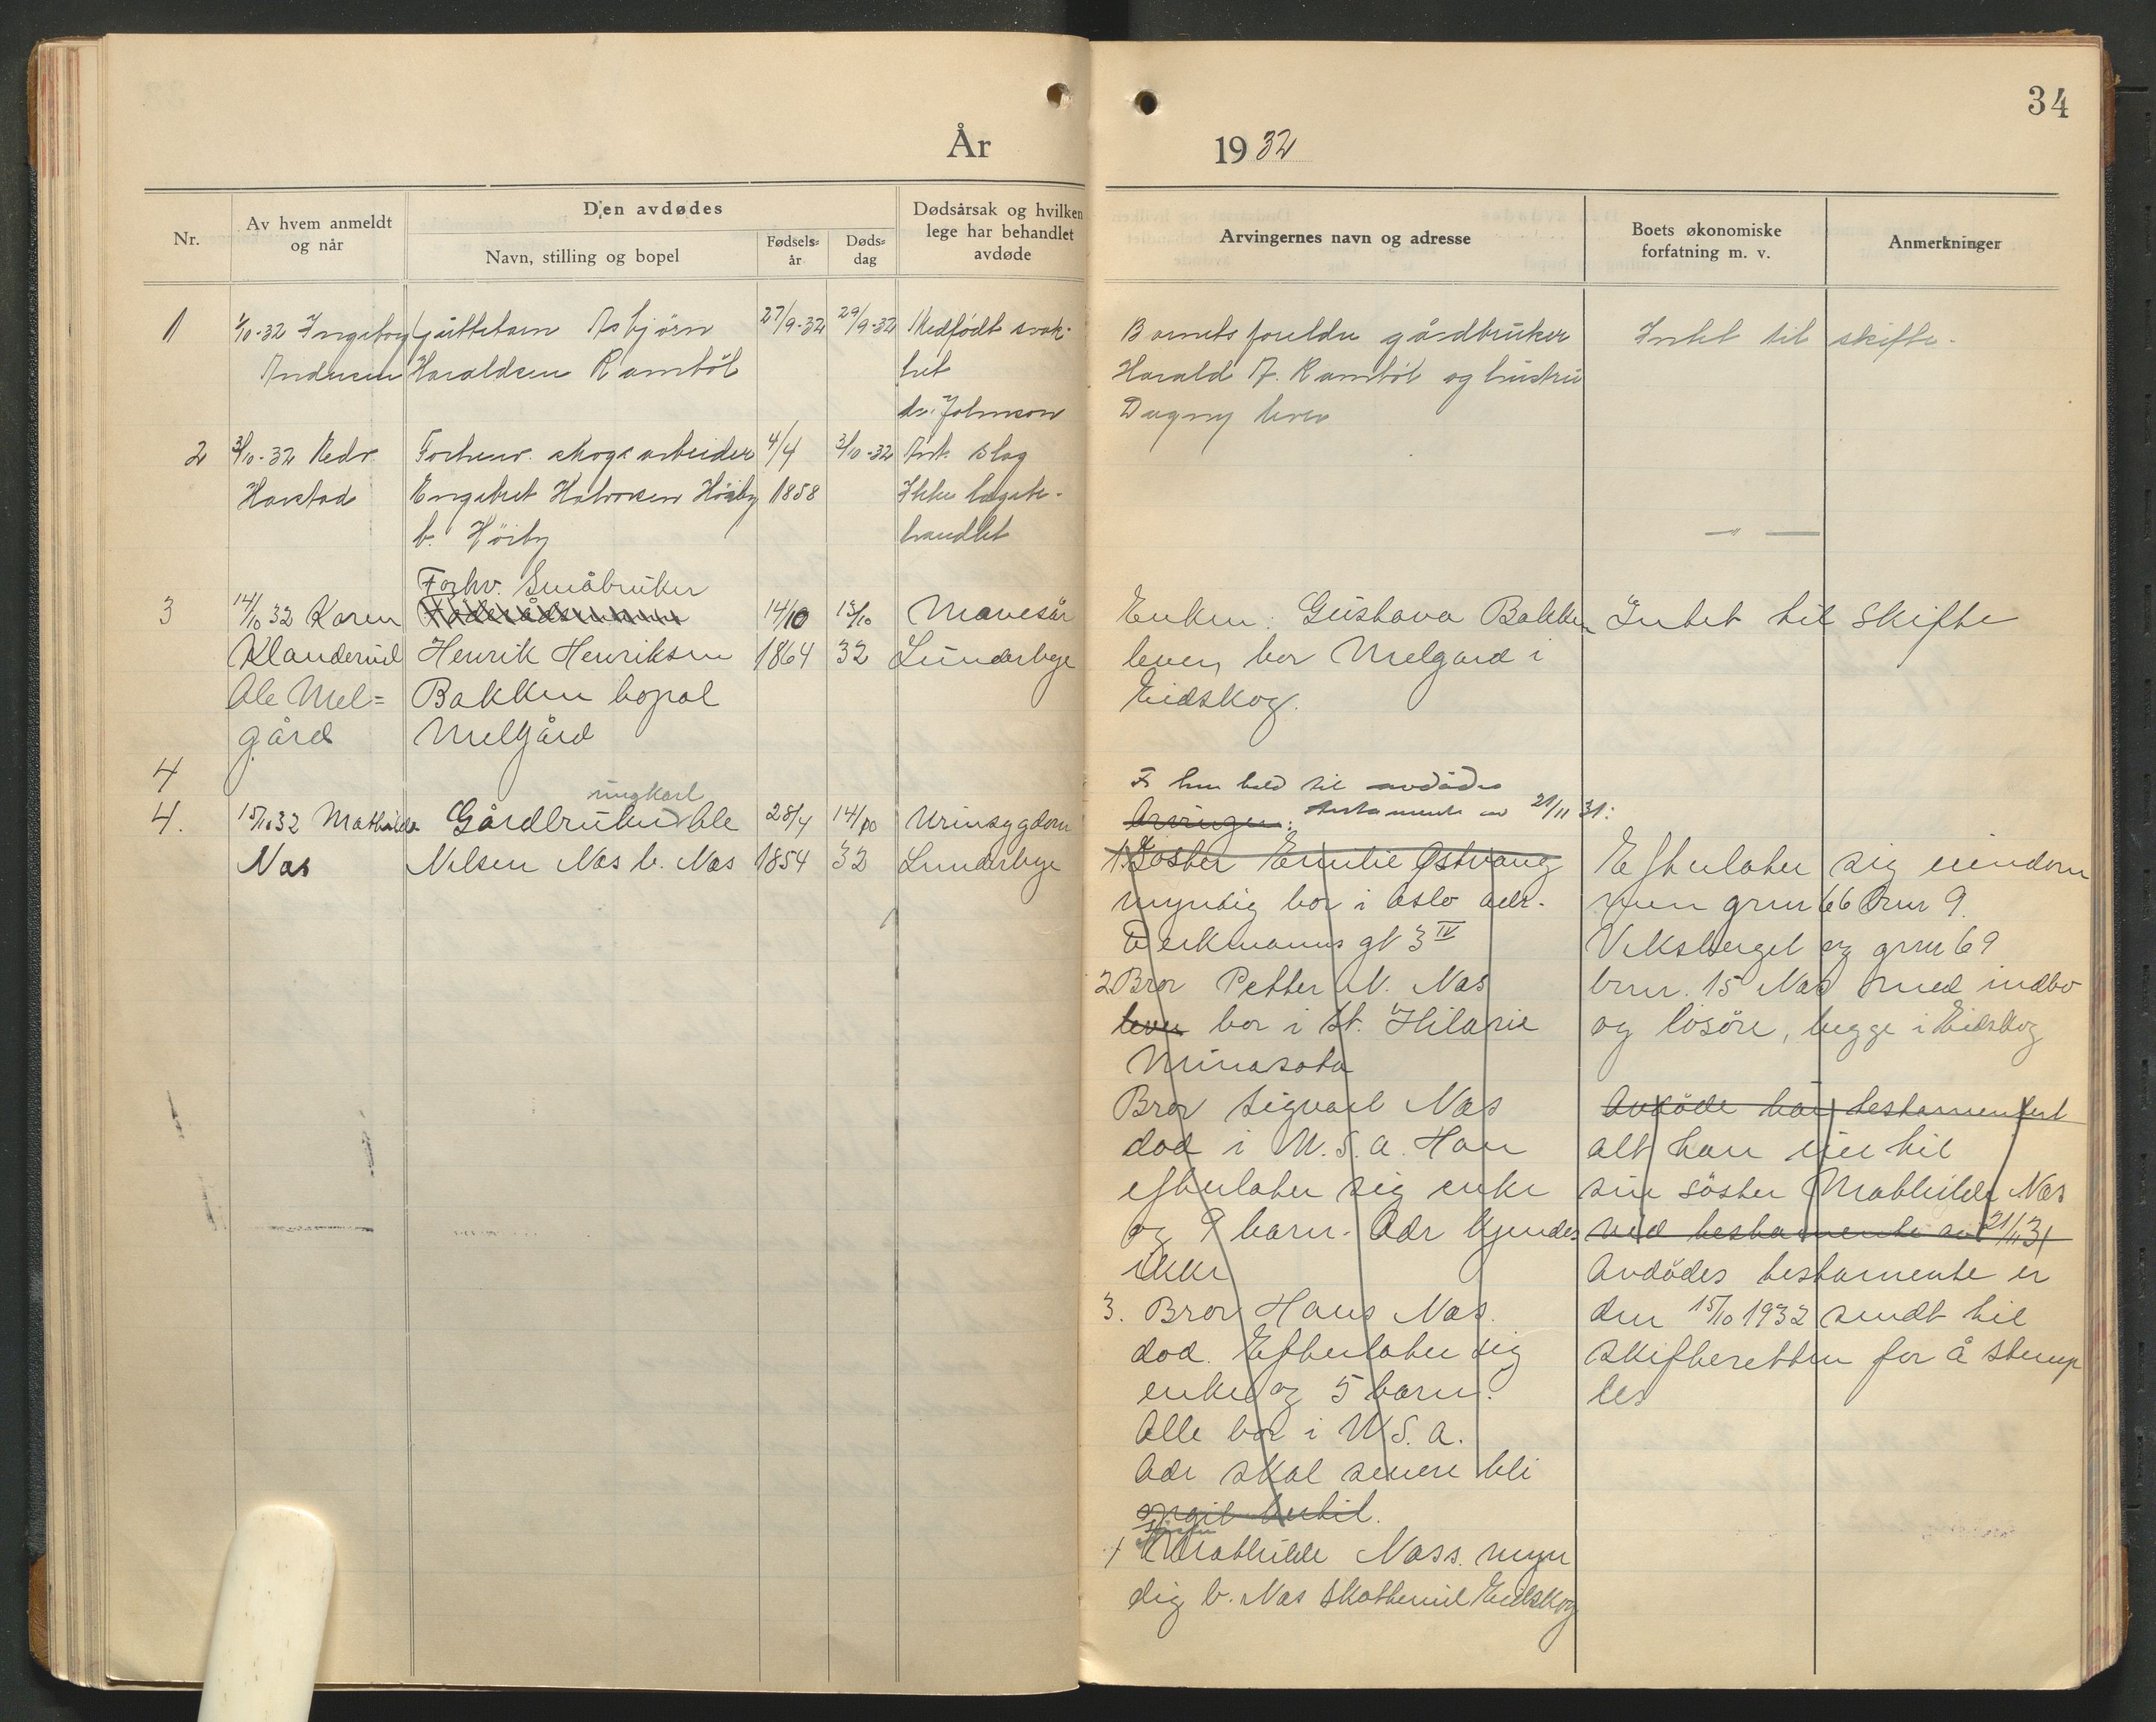 34
År 1932
Nr.
Av hvem anmeldt
og når
Den avdødes
Navn, stilling og bopel
Fødsels-
år
Døds-
dag
Dødsårsak og hvilken
lege har behandlet
avdøde
Arvingernes navn og adresse
Boets økonomiske
forfatning m. v.
Anmerkninger
1
1/10-32 Ingeborg
Andersen
guttebarn Asbjørn
Haraldsen Rambøl
27/9-32
29/9-32
Medfødt svak-
het
dr. Johnson
Barnets foreldre gårdbruker
Harald A. Rambøl og hustru
Dagny lever
Intet til skifte.
2
3/10-32 Nedr.
Harstad
Forhenv. skogsarbeider
Engebret Halvorsen Høiby
b. Höiby
4/4
1858
3/10-32
Ant. slag
Ikke legebe-
handlet
— " —
3
14/10 32 Karen
Klanderud
Ole Mel=
gård
Forhv. Småbruker
Henrik Henriksen
Bakken bopæl
Melgård
14/10
1864
13/10
32
Mavesår
Lunderbye
Enken: Gustava Bakken
lever, bor Melgård i
Eidskog.
Intet til Skifte
4
4.
15/10 32 Mathilde
Næs
ungkarl
Gårdbruker Ole
Nilsen Næs b. Næs
28/4
1854
14/10
32
Urinsygdom
Lunderbye
I henhold til avdødes
Arvinger: testamente av 21/11 31:
1. Søster Emilie Østvang
myndig bor i Oslo adr.
gt 3 IV
2 Bror Petter N. Næs
lever bor i St. Hilarie
Minasota
Bror Sigvart Næs
død i U.S.A. Han
efterlater sig enke
og 9 barn. Adr kjendes
ikke
3. Bror Hans Næs.
død. Efterlater sig
enke og 5 barn.
Alle bor i U.S.A.
Adr skal senere bli
opgit hertil.
søsteren
1 Mathilde Næss. myn
dig b. Næs Skotterud Eidskog
Efterlater sig eiendom
men grnr 66 brnr 9.
Viksberget og grnr 69
brnr. 15 Næs med indbo
og løsøre, begge i Eidskog
Avdøde har testamentert
alt han eier til
sin søster Mathilde Næs
ved testamente av 21/11 31
Avdødes testamente er
den 15/10 1932 sendt til
Skifteretten for å stemp
les